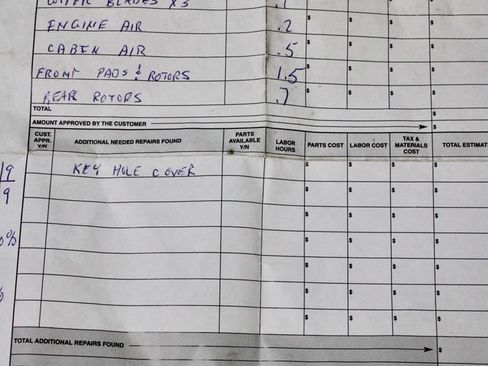 WIPER BLADES X3 .1 $
ENGINE AIR .2 $ $
CABIN AIR .5 $ $
FRONT PADS & ROTORS 1.5 $ $
REAR ROTORS .7 $ $
TOTAL $
AMOUNT APPROVED BY THE CUSTOMER $
CUST. APPR. Y/N ADDITIONAL NEEDED REPAIRS FOUND PARTS AVAILABLE Y/N LABOR HOURS PARTS COST LABOR COST TAX & MATERIALS COST TOTAL ESTIMAT
9 KEY HOLE COVER $ $ $ $
9 $ $ $ $
$ $ $ $
0% $ $ $ $
$ $ $ $
% $ $ $ $
$ $ $ $
TOTAL ADDITIONAL REPAIRS FOUND $